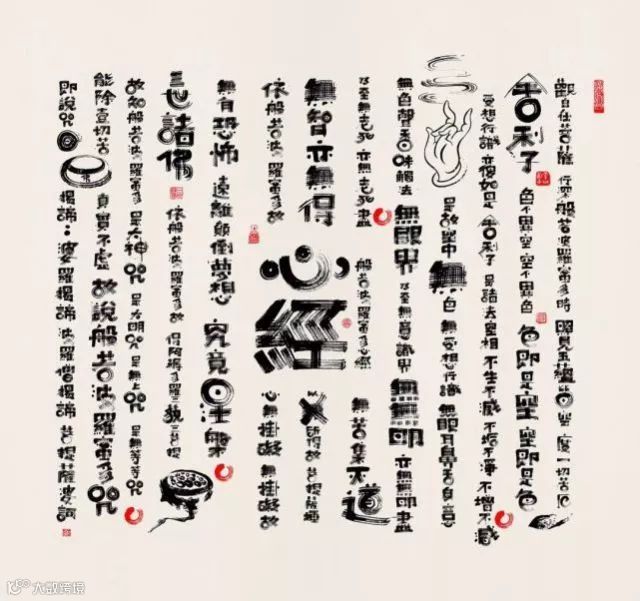 觀自在菩薩 行深般若波羅蜜多時 照見五蘊皆空 度一切苦厄
舍利子 色不異空 空不異色 色即是空 空即是色
受想行識 亦復如是 舍利子 是諸法空相 不生不滅 不垢不淨 不增不減
是故空中無色 無受想行識 無眼耳鼻舌身意
無色聲香味觸法 無眼界 乃至無意識界 無無明 亦無無明盡
乃至無老死 亦無老死盡 般若波羅蜜多心經 無苦集灭道
無智亦無得 心經 所得故 菩提薩埵
依般若波羅蜜多故 心無掛礙 無掛礙故
無有恐怖 遠離顛倒夢想 究竟涅槃
三世諸佛 依般若波羅蜜多故 得阿耨多羅三藐三菩提
故知般若波羅蜜多 是大神咒 是大明咒 是無上咒 是無等等咒
能除壹切苦 真實不虛 故說般若波羅蜜多咒
即說咒曰 揭諦：婆羅揭諦 波羅僧揭諦 菩提薩婆訶
大数跨境